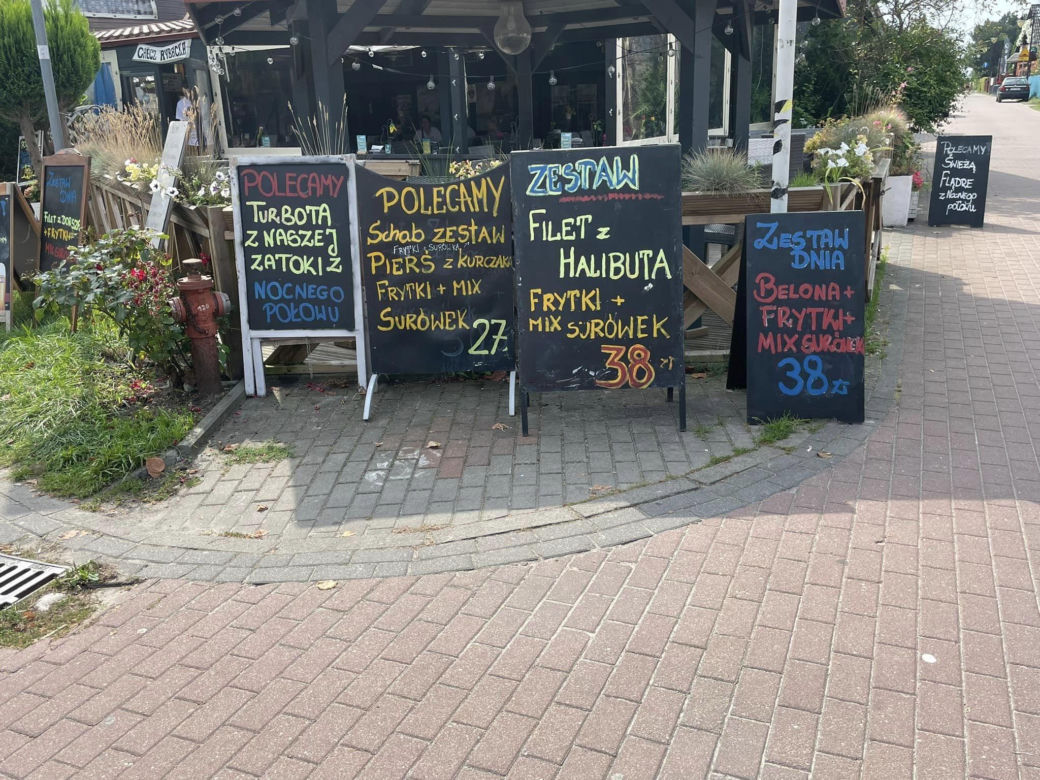 CHËCZ RYBACKA
ZESTAW
DNIA
FILET z DORSZA
+ FRYTKI+
POLECAMY
TURBOTA
Z NASZEJ
ZATOKI Z
NOCNEGO
POŁOWU
POLECAMY
Schab ZESTAW
FRYTKI + SURÓWKA
PIERŚ z KURCZAKA
FRYTKI + MIX
SURÓWEK 27
ZESTAW
FILET z
HALIBUTA
FRYTKI +
MIX SURÓWEK
38 zł
ZESTAW
DNIA
BELONA+
FRYTKI+
MIX SURÓWEK
38 zł
POLECAMY
ŚWIEŻĄ
FLĄDRĘ
z NOCNEGO
POŁOWU